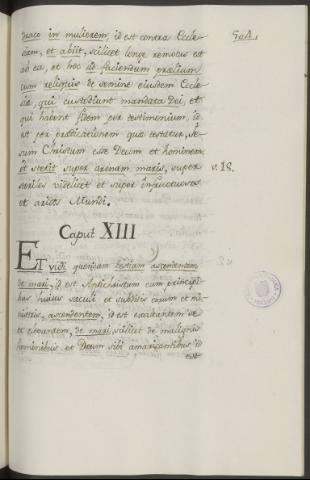 draco in mulierem, id est contra Eccle-
siam, et abiit, scilicet longe remotus est
ab ea, et hoc id faciendum prœlium
cum reliquis de semine eiusdem Eccle-
siæ, qui custodiunt mandata Dei, et
qui habent fidem per testimonium, id
est per prædicationem qua testatur, Je-
sum Christum esse Deum et hominem
et stetit super arenam maris, super
steriles videlicet et super infructuosos
et aridos Mundi.
v. 18.
Caput XIII
Et vidi quendam bestiam ascendentem
de mari, id est Antichristum cum principi-
bus huius sæculi et subditis eorum et mi-
nistris, ascendentem, id est exaltantem se
et elevantem, de mari scilicet de malignis
hominibus et Deum sibi amaricantibus id
est